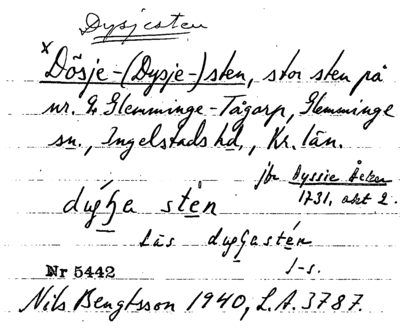 Dysjesten
x Dösje-(Dysje-)sten, stor sten på
nr. 2 Glemminge-Tågarp, Glemminge
sn., Ingelstads hd., Kr. län.
jbr Dyssie Åcker
1731, akt 2.
sten
Läs
1-s.
Nr 5442
Nils Bengtsson 1940, L.A. 3787.